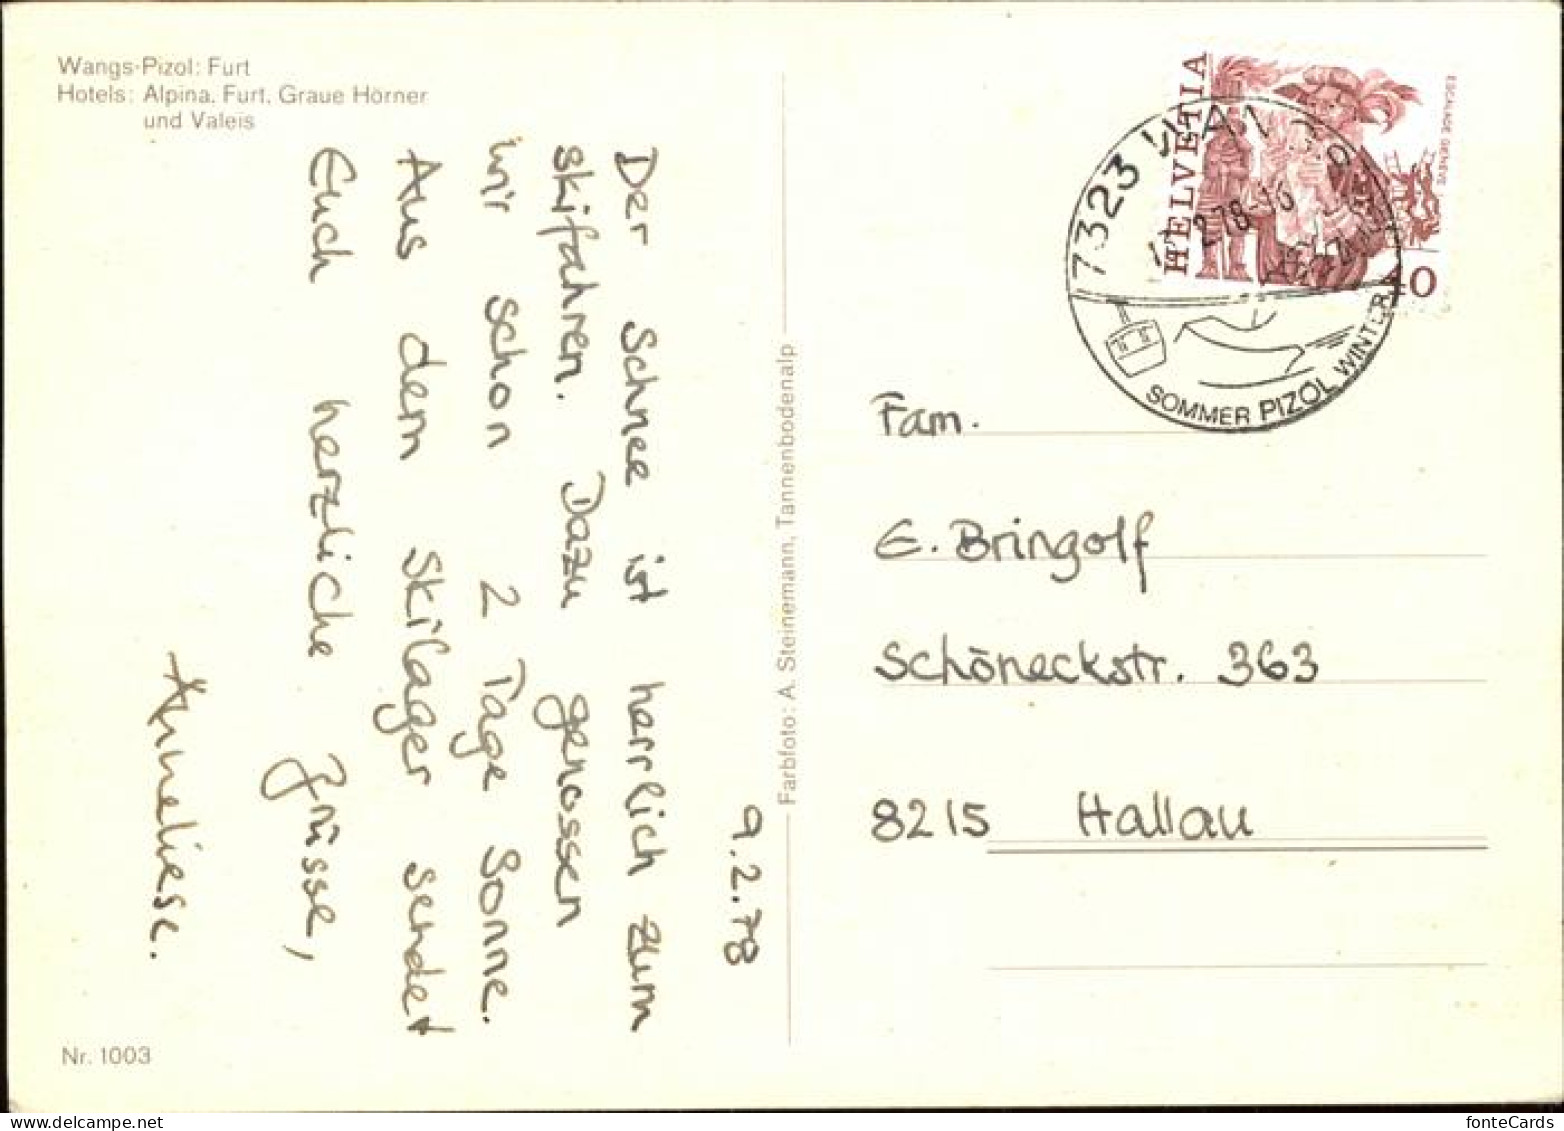 Wangs-Pizol: Furt
Hotels: Alpina, Furt, Graue Hörner
und Valeis
9.2.78
Der Schnee ist herrlich zum
skifahren. Dazu genossen
wir schon 2 Tage Sonne.
Aus dem Skilager sendet
Euch herzliche Grüsse,
Anneliese.
Nr. 1003
Farbfoto: A. Steinemann, Tannenbodenalp
HELVETIA
ESCALADE GENÈVE
40
7323 WANGS
2.78-16
SOMMER PIZOL WINTER
Fam.
E. Bringolf
Schöneckstr. 363
8215 Hallau
fonteCards